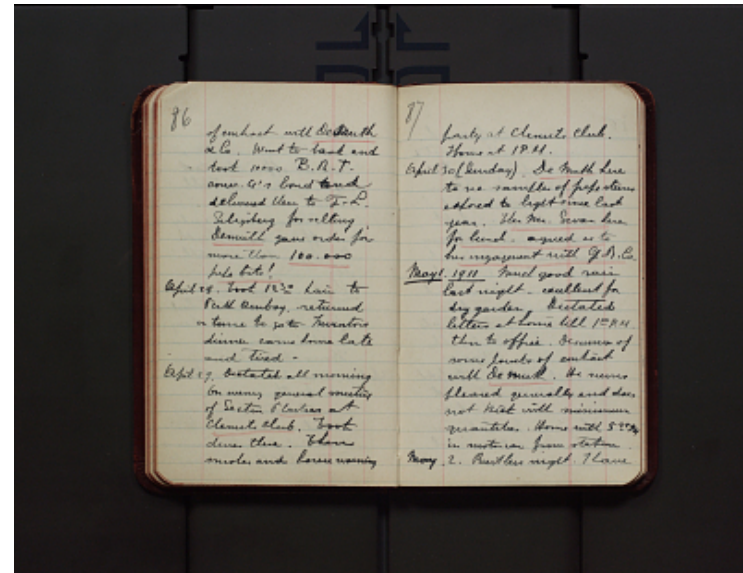 86
of contract with Demuth
& Co. Went to bank and
took 10000 B.R.T.
conv. 4's bond and
delivered them to F. L.
Seligsberg for selling
Demuth gave order for
more than 100.000
pipe bits!
April 28. Took 12 train to
Perth Amboy. returned
in time to go to Inventors
dinner came home late
and tired -
April 29. Dictated all morning
In evening general meeting
of Section at
Chemists Club. Took
dinner there. 
smoker and
87
party at Chemists Club.
Home at 1 P.M.
April 30 (Sunday). De Muth here
to see samples of pipe stems
exposed to light since last
year. Mr. Swan here
for lunch. agreed as to
his engagement with G. B. Co.
May 1. 1911 Much good rain
last night. excellent for
dry garden. Dictated
letters at home till 1 P.M.
then to office. Discussion of
some points of contract
with De Muth. He seems
pleased generally and does
not kick with minimum
quantities. Home with 5
in motor car from station
May. 2. Restless night. I have